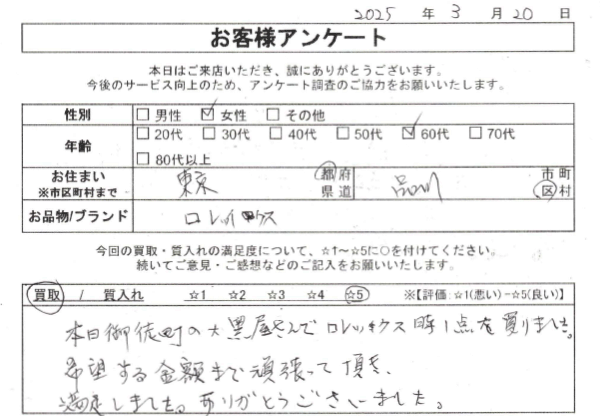 2025 年 3 月 20 日
お客様アンケート
本日はご来店いただき、誠にありがとうございます。
今後のサービス向上のため、アンケート調査のご協力をお願いいたします。
性別 □男性 ☑女性 □その他
年齢 □20代 □30代 □40代 □50代 ☑60代 □70代
□80代以上
お住まい 東京 都府 品川 市町
※市区町村まで 県道 区村
お品物/ブランド ロレックス
今回の買取・質入れの満足度について、☆1〜☆5に○を付けてください。
続いてご意見・ご感想などのご記入をお願いいたします。
買取 / 質入れ ☆1 ☆2 ☆3 ☆4 ☆5 ※【評価:☆1(悪い)−☆5(良い)】
本日御徒町の大黒屋さんでロレックス時1点を買りました。
希望する金額まで頑張って頂き、
満足しました。ありがとうございました。